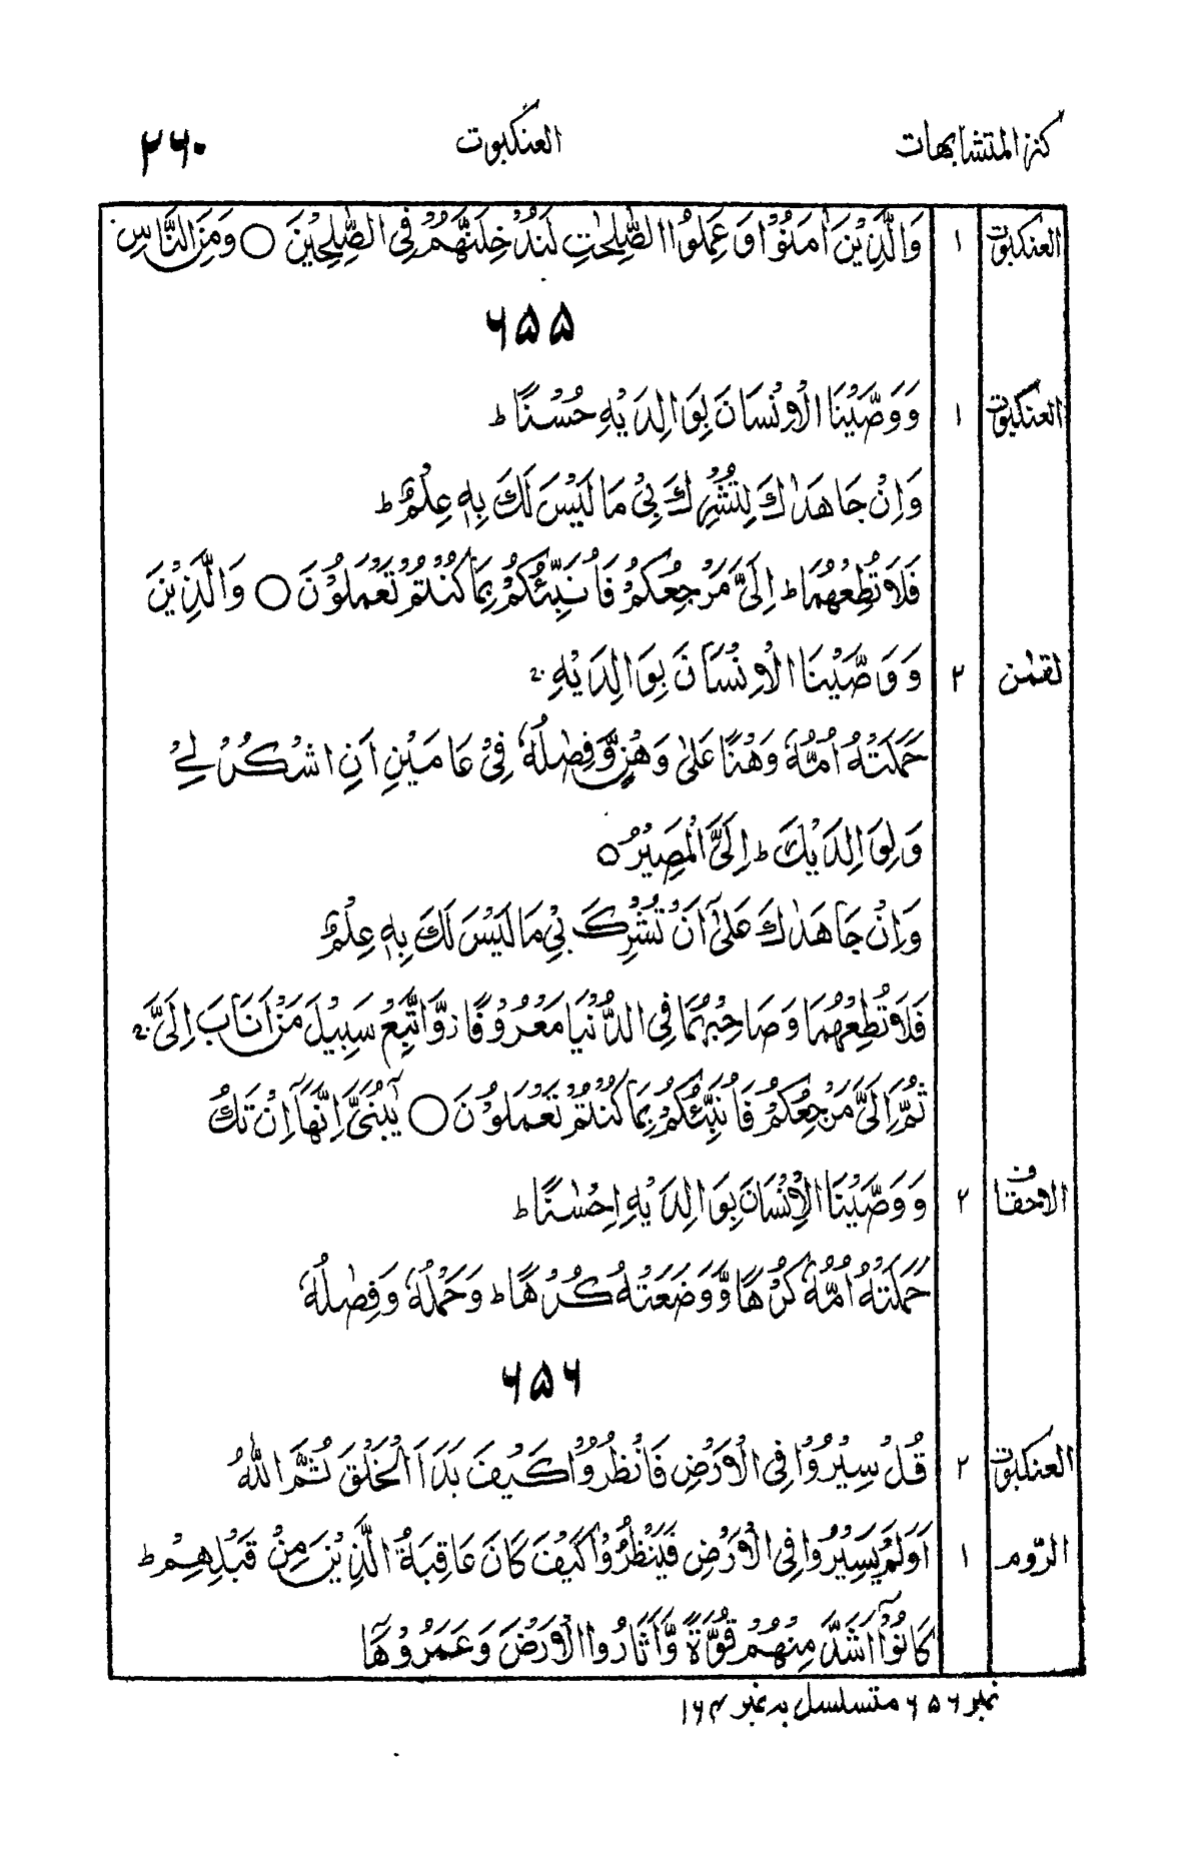 كنز المتشابهات العنكبوت ۲۶۰
العنكبوت ١ وَالَّذِيْنَ اٰمَنُوْا وَ عَمِلُوا الصّٰلِحٰتِ لَنُدْخِلَنَّهُمْ فِى الصّٰلِحِيْنَ ○ وَمِنَ النَّاسِ
۶۵۵
العنكبوت ١ وَوَصَّيْنَا الْاِنْسَانَ بِوَالِدَيْهِ حُسْنًا ط
وَاِنْ جَاهَدٰكَ لِتُشْرِكَ بِىْ مَا لَيْسَ لَكَ بِهٖ عِلْمٌ ط
فَلَا تُطِعْهُمَا ط اِلَىَّ مَرْجِعُكُمْ فَاُنَبِّئُكُمْ بِمَا كُنْتُمْ تَعْمَلُوْنَ ○ وَالَّذِيْنَ
لقمٰن ٢ وَوَصَّيْنَا الْاِنْسَانَ بِوَالِدَيْهِ ۚ
حَمَلَتْهُ اُمُّهٗ وَهْنًا عَلٰى وَهْنٍ وَّفِصٰلُهٗ فِىْ عَامَيْنِ اَنِ اشْكُرْ لِىْ
وَلِوَالِدَيْكَ ط اِلَىَّ الْمَصِيْرُ ○
وَاِنْ جَاهَدٰكَ عَلٰٓى اَنْ تُشْرِكَ بِىْ مَا لَيْسَ لَكَ بِهٖ عِلْمٌ
فَلَا تُطِعْهُمَا وَصَاحِبْهُمَا فِى الدُّنْيَا مَعْرُوْفًا ز وَّاتَّبِعْ سَبِيْلَ مَنْ اَنَابَ اِلَىَّ ۚ
ثُمَّ اِلَىَّ مَرْجِعُكُمْ فَاُنَبِّئُكُمْ بِمَا كُنْتُمْ تَعْمَلُوْنَ ○ يٰبُنَىَّ اِنَّهَآ اِنْ تَكُ
الاحقاف ٢ وَوَصَّيْنَا الْاِنْسَانَ بِوَالِدَيْهِ اِحْسٰنًا ط
حَمَلَتْهُ اُمُّهٗ كُرْهًا وَّوَضَعَتْهُ كُرْهًا ط وَحَمْلُهٗ وَفِصٰلُهٗ
۶۵۶
العنكبوت ٢ قُلْ سِيْرُوْا فِى الْاَرْضِ فَانْظُرُوْا كَيْفَ بَدَاَ الْخَلْقَ ثُمَّ اللّٰهُ
الرّوم ١ اَوَلَمْ يَسِيْرُوْا فِى الْاَرْضِ فَيَنْظُرُوْا كَيْفَ كَانَ عَاقِبَةُ الَّذِيْنَ مِنْ قَبْلِهِمْ ط
كَانُوْٓا اَشَدَّ مِنْهُمْ قُوَّةً وَّاَثَارُوا الْاَرْضَ وَعَمَرُوْهَآ
نمبر ۶۵۶ متسلسل بہ نمبر ۱۶۴